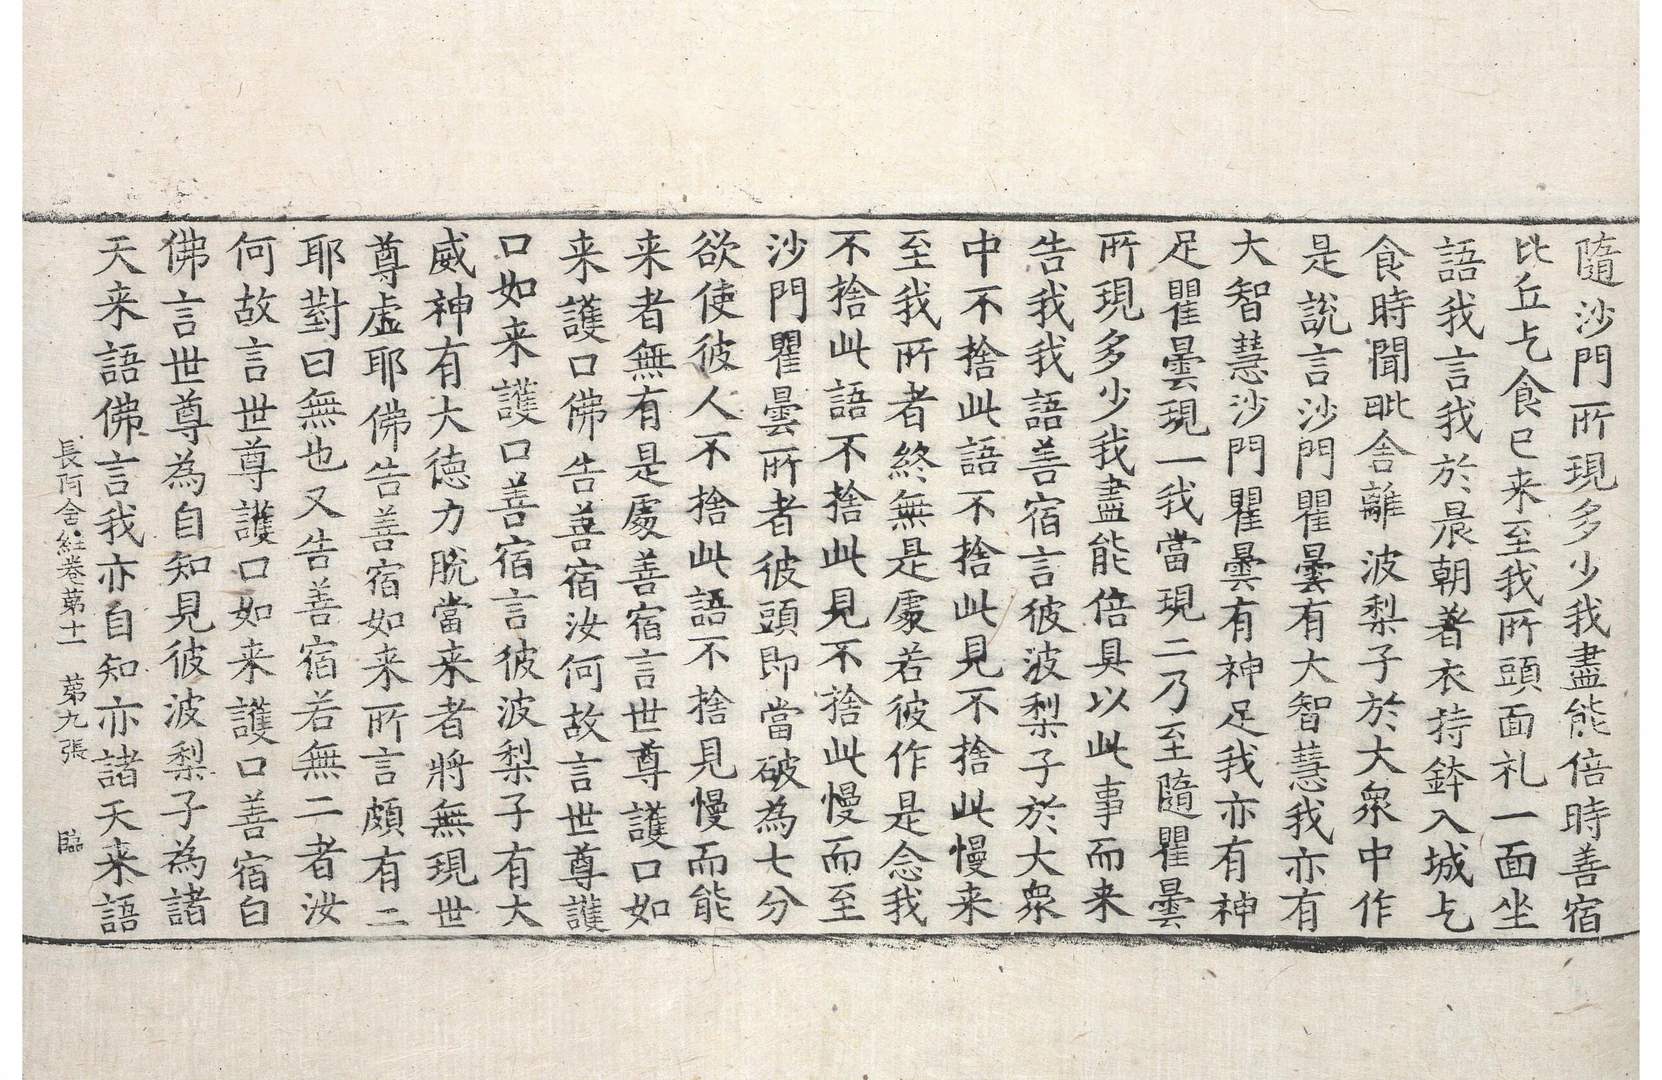 隨沙門所現多少我盡能倍時善宿
比丘乞食已来至我所頭面礼一面坐
語我言我於晨朝著衣持鉢入城乞
食時聞毗舍離波梨子於大衆中作
是説言沙門瞿曇有大智慧我亦有
大智慧沙門瞿曇有神足我亦有神
足瞿曇現一我當現二乃至隨瞿曇
所現多少我盡能倍具以此事而来
告我我語善宿言彼波梨子於大衆
中不捨此語不捨此見不捨此慢来
至我所者終無是處若彼作是念我
不捨此語不捨此見不捨此慢而至
沙門瞿曇所者彼頭即當破為七分
欲使彼人不捨此語不捨見慢而能
来者無有是處善宿言世尊護口如
来護口佛告善宿汝何故言世尊護
口如来護口善宿言彼波梨子有大
威神有大德力脫當来者將無現世
尊虛耶佛告善宿如来所言頗有二
耶對曰無也又告善宿若無二者汝
何故言世尊護口如来護口善宿白
佛言世尊為自知見彼波梨子為諸
天来語佛言我亦自知亦諸天来語
長阿含經卷第十一 第九張 臨